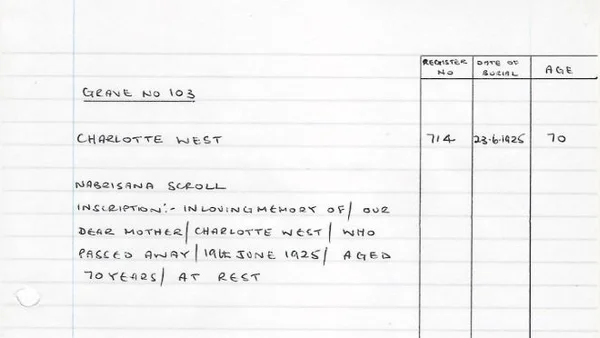 REGISTER NO DATE OF BURIAL AGE
GRAVE NO 103
CHARLOTTE WEST 714 23-6-1925 70
NABRISANA SCROLL
INSCRIPTION:- IN LOVING MEMORY OF/ OUR
DEAR MOTHER/ CHARLOTTE WEST/ WHO
PASSED AWAY/ 19th JUNE 1925/ AGED
70 YEARS/ AT REST